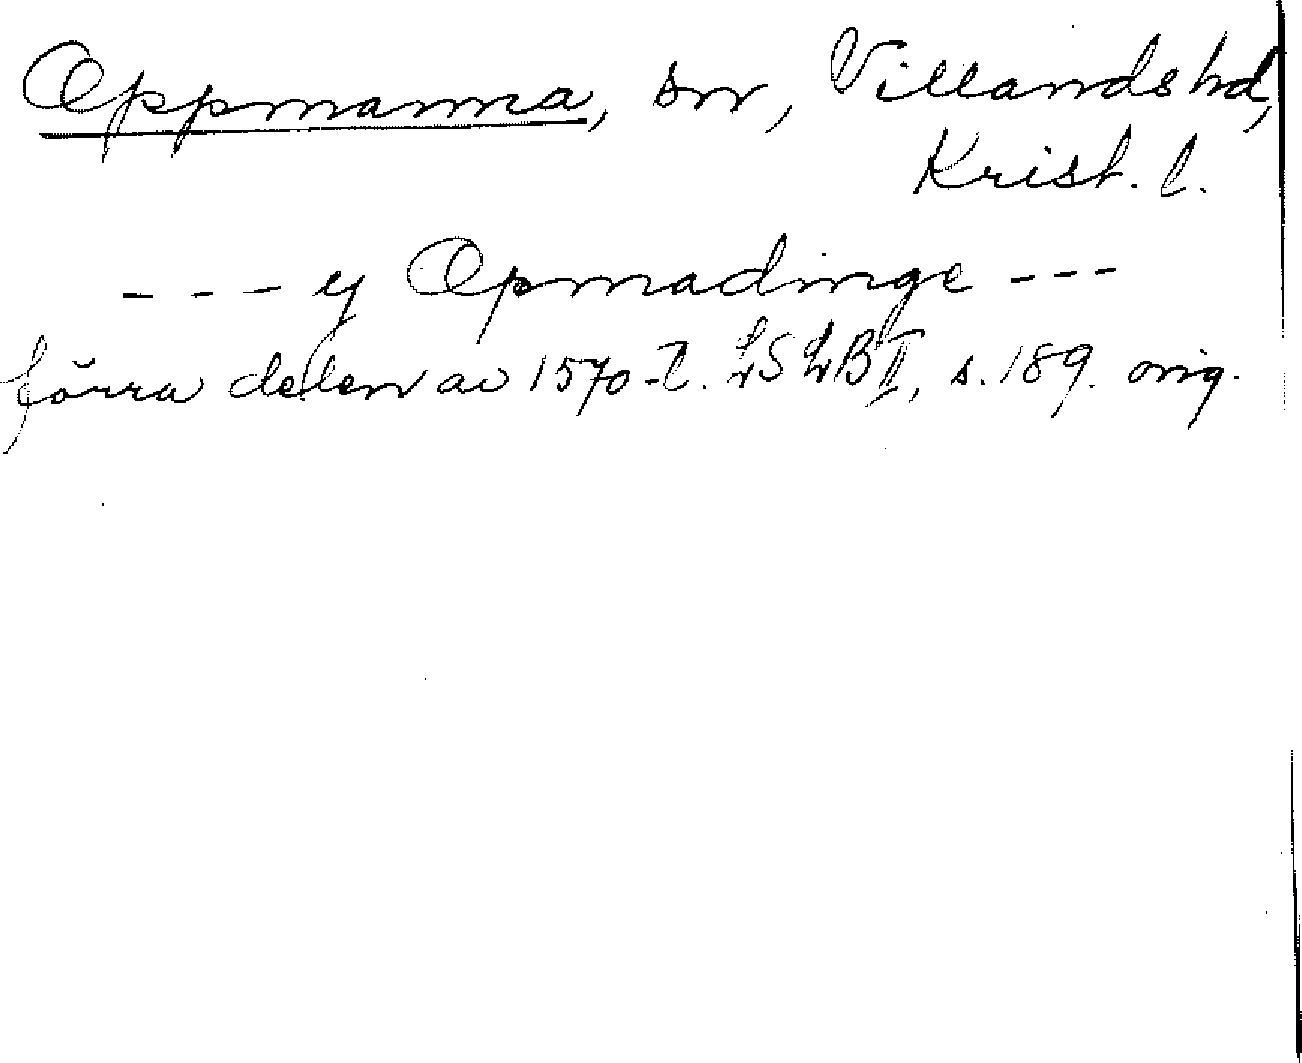 Oppmanna, sn, Villands hd,
Krist. l.
--- y Opmadinge ---
förra delen av 1570-t. LSLB I, s. 189. orig.